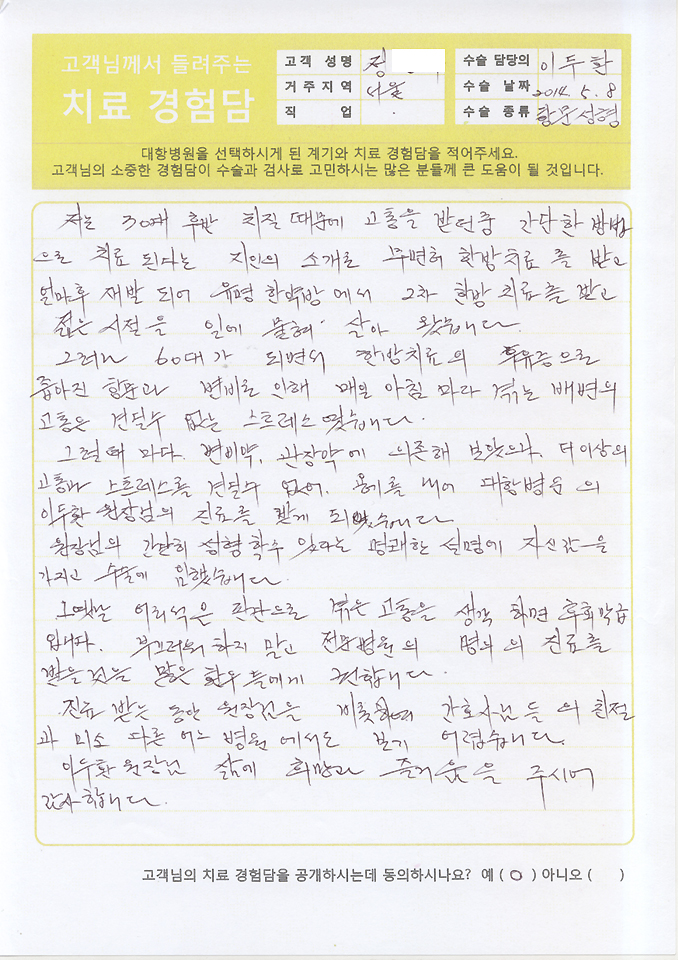 고객님께서 들려주는
치료 경험담
고객 성명 정
거주지역 서울
직 업 .
수술 담당의 이두환
수술 날짜 2014. 5. 8
수술 종류 항문성형
대항병원을 선택하시게 된 계기와 치료 경험담을 적어주세요.
고객님의 소중한 경험담이 수술과 검사로 고민하시는 많은 분들께 큰 도움이 될 것입니다.
저는 30대 후반 치질 때문에 고통을 받던중 간단한 방법
으로 치료 된다는 지인의 소개로 무면허 한방치료를 받고
얼마후 재발 되어 유명 한약방에서 2차 한방치료를 받고
젊은 시절을 일에 묻혀 살아 왔습니다.
그러나 60대가 되면서 한방치료의 후유증으로
좁아진 항문과 변비로 인해 매일 아침 마다 겪는 배변의
고통은 견딜수 없는 스트레스 였습니다.
그럴때 마다. 변비약, 관장약에 의존해 보았으나, 더이상의
고통과 스트레스를 견딜수 없어. 용기를 내어 대항병원의
이두환 원장님의 진료를 받게 되었습니다
원장님의 간단히 성형 할수 있다는 명쾌한 설명에 자신감을
가지고 수술에 임했습니다.
그옛날 어리석은 판단으로 겪은 고통을 생각 하면 후회막급
입니다. 부끄러워 하지 말고 전문병원의 명의의 진료를
받을것을 많은 환우들에게 권합니다.
진료 받는 동안 원장님을 비롯하여 간호사님들의 친절
과 미소 다른 어느 병원에서도 보기 어렵습니다.
이두환 원장님 삶에 희망과 즐거움을 주시어
감사합니다.
고객님의 치료 경험담을 공개하시는데 동의하시나요? 예 ( O ) 아니오 ( )